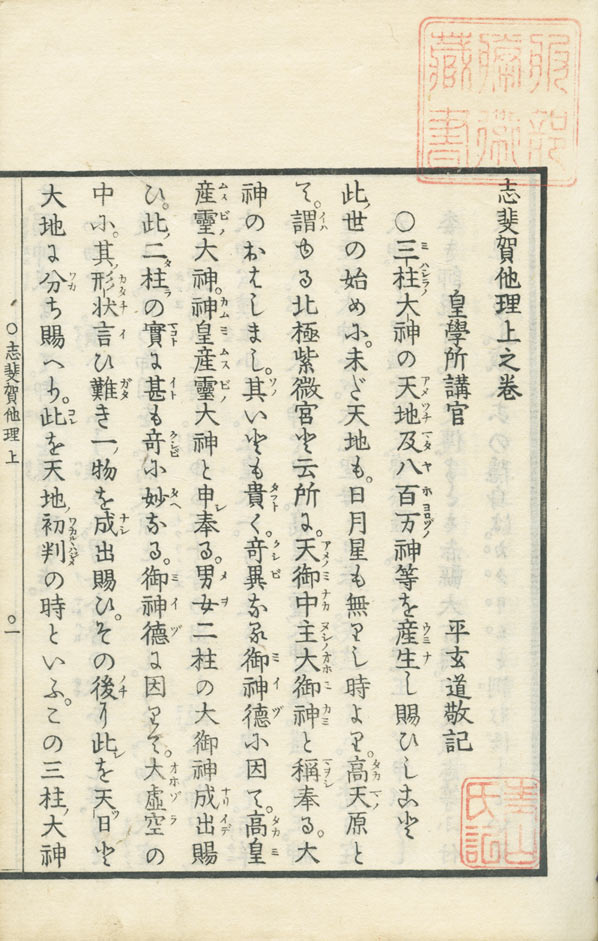 服部
彌術
藏書
志斐賀他理上之卷
皇學所講官 平玄道敬記
○三柱大神の天地及八百万神等を産生し賜ひしこと
此世の始めに。未だ天地も。日月星も無りし時より。高天原と
て。謂ゆる北極紫微宮と云所に。天御中主大御神と稱奉る。大
神のおはしまし。其いとも貴く。奇異なる御神德に因て。高皇
産靈大神。神皇産靈大神と申奉る。男女二柱の大御神成出賜
ひ。此二柱の實に甚も奇に妙なる。御神德に因りて。大虛空の
中に。其形状言ひ難き一物を成出賜ひ。その後り此を天日と
大地に分ち賜へり。此を天地初判の時といふ。この三柱大神
○志斐賀他理上
○一
青山
氏記